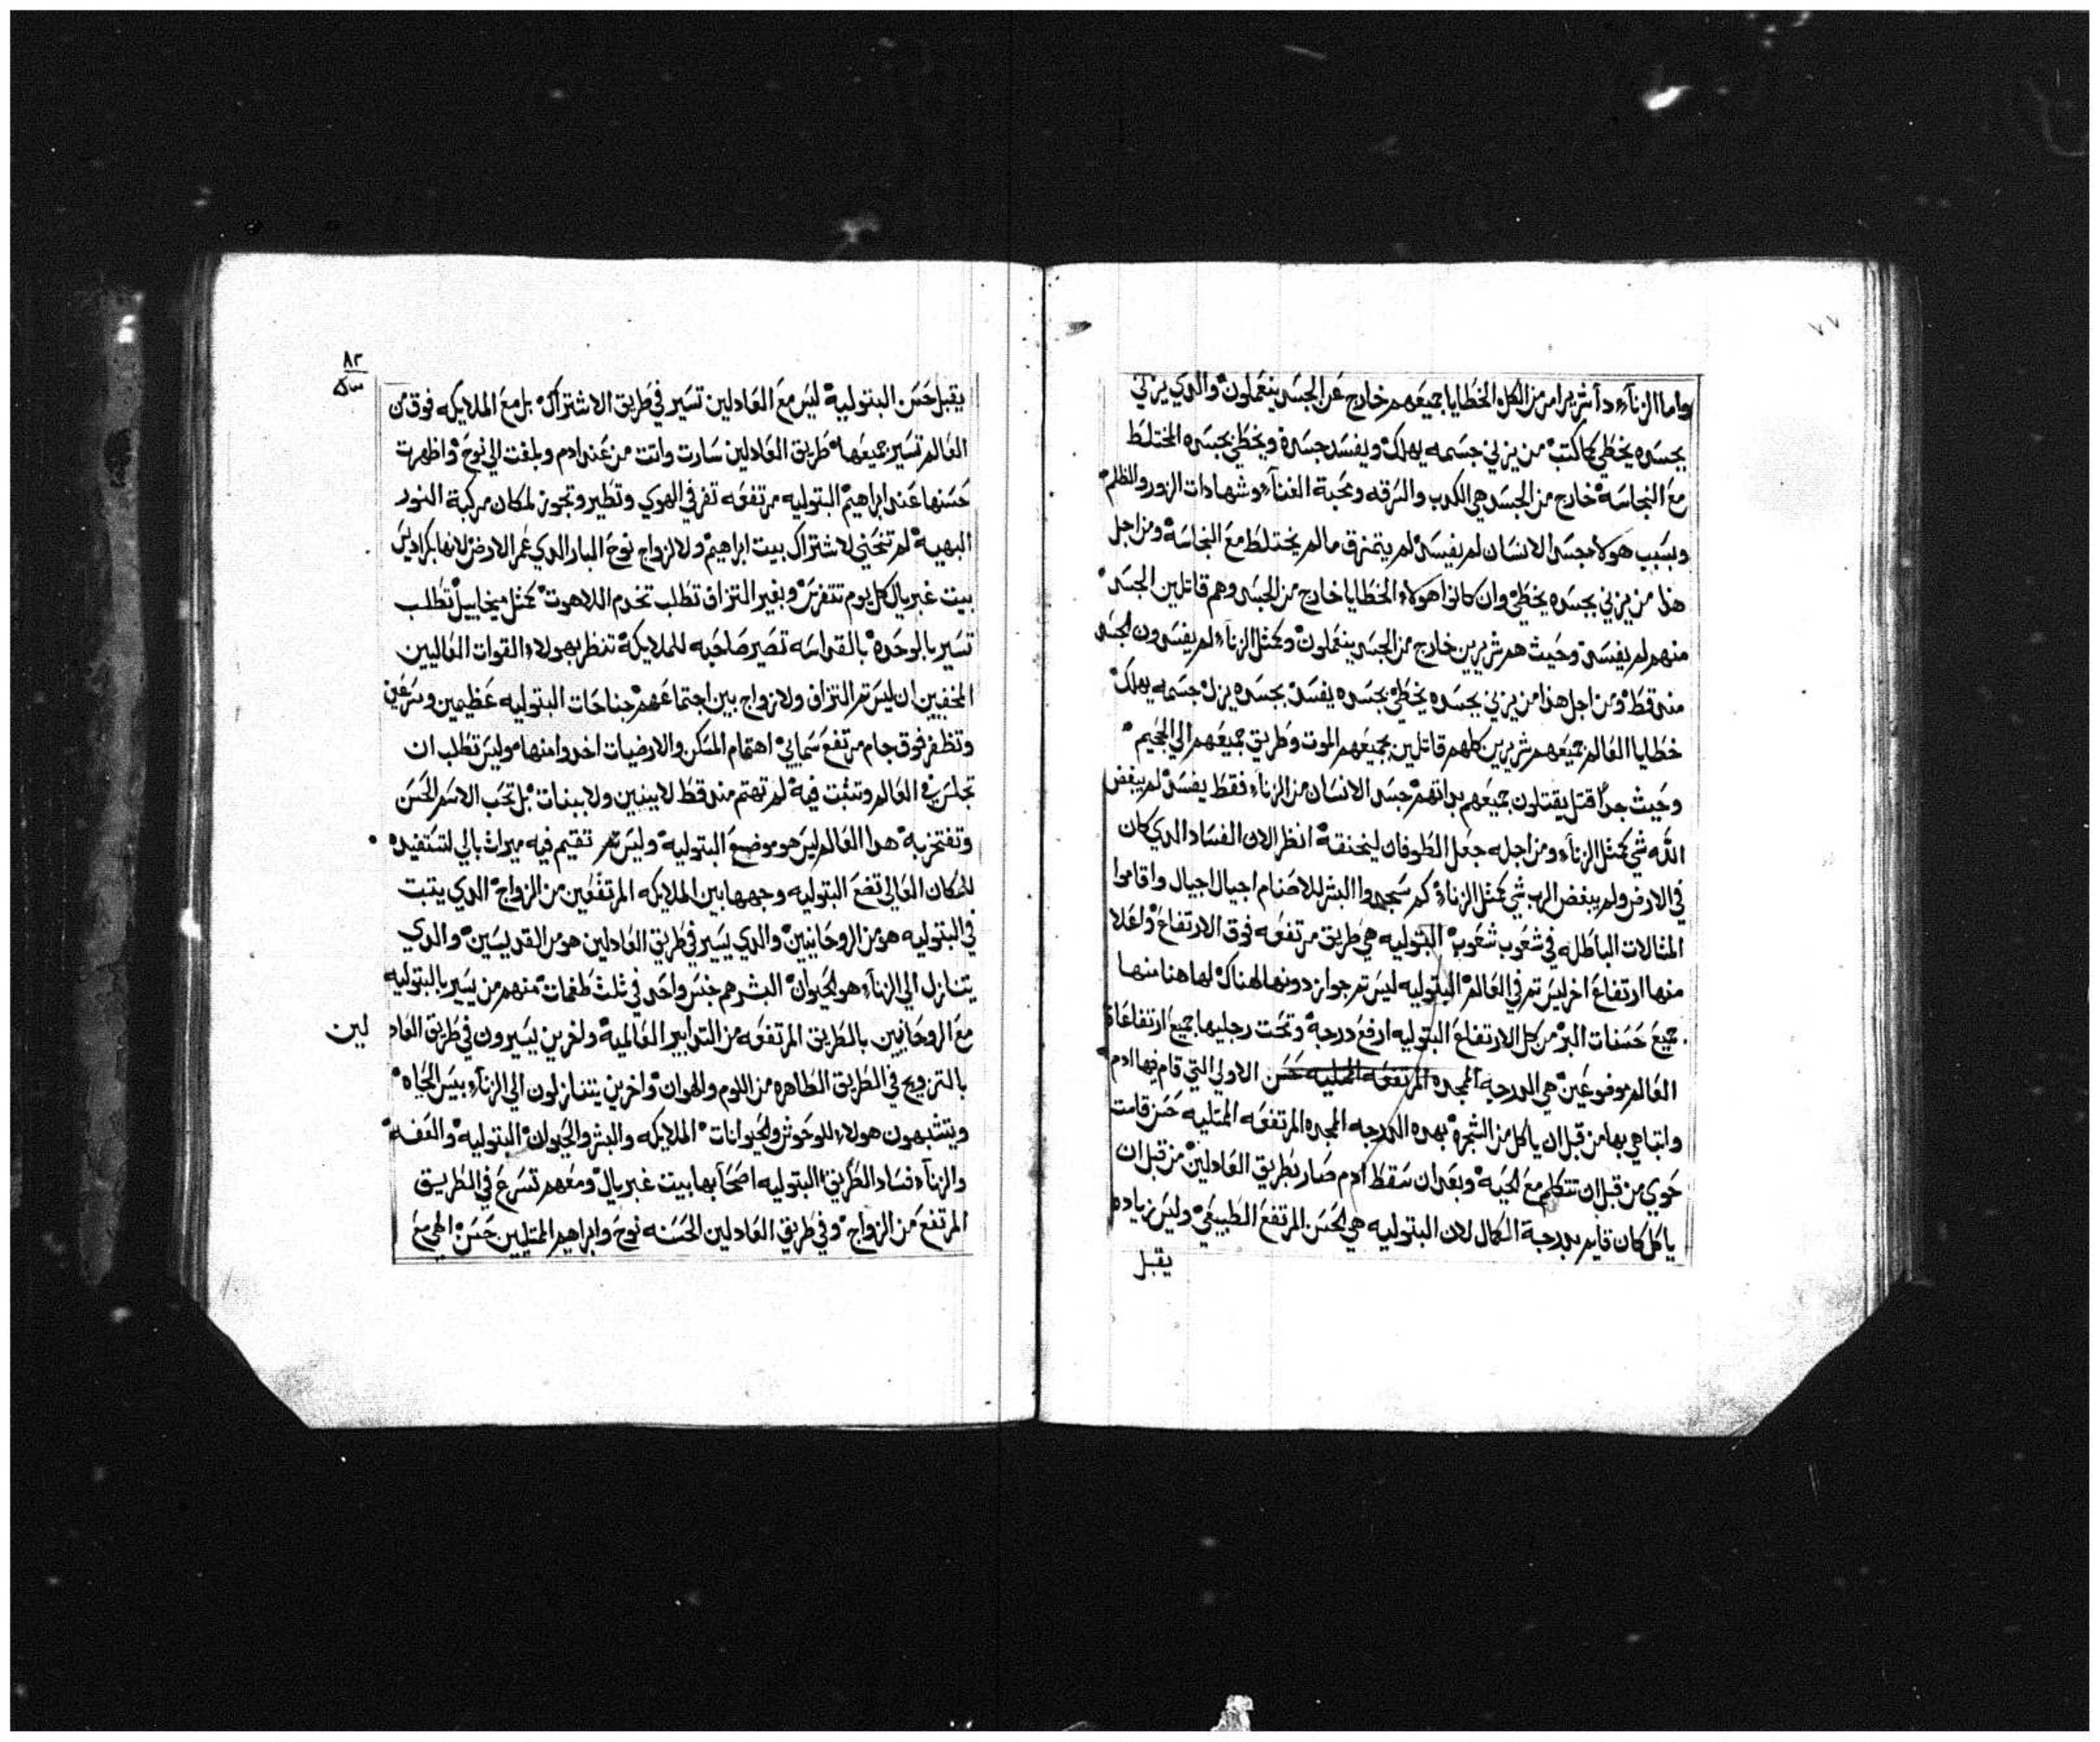 ٧٧
واما الزناء دأ شر مر امر من الكل الخطايا جميعهم خارج عن الجسد ينعملون والدي يزني
بجسده يخطي كما كتب من يزني جسمه يهلك ويفسد جسده ويخطي بجسده المختلط
مع النجاسة خارج من الجسد هي الكدب والسرقه ومحبة الغناء وشهادات الزور والظلم
وبسبب هولاء جسد الانسان لم يفسد لم يتمزق ما لم يختلط مع النجاسة ومن اجل
هذا من يزني بجسده يخطي وان كانوا هولاء الخطايا خارج من الجسد وهم قاتلين الجسد
منهم لم يفسد وحيث هم شريرين خارج من الجسد ينعملون وكمثل الزناء لم يفسدون الجسد
منه قط ومن اجل هذا من يزني بجسده يخطي بجسده يفسد بجسده يزل جسمه يهلك
خطايا العالم جميعهم شريرين كلهم قاتلين بجميعهم الموت وطريق جميعهم الي الجحيم
وحيث جداً قتل يقتلون جميعهم بداتهم جسد الانسان من الزناء فقط يفسد لم يبغض
الله شي كمثل الزناء ومن اجله جعل الطوفان ليخنقه انظر الان الفساد الدي كان
في الارض ولم يبغض الرب شي كمثل الزناء كم سجدوا البشر للاصنام اجيال اجيال واقاموا
المثالات الباطله في شعوب شعوب البتوليه هي طريق مرتفعه فوق الارتفاع واعلا
منها ارتفاع اخر ليس تم في العالم البتوليه ليس تم جواز دونها لهناك لها هنا منها
جميع حسنات البر من كل الارتفاع البتوليه ارفع درجة وتحت رجليها جميع ارتفاعاة
العالم موضوعين هي الدرجه الممجده المرتفعه المتليه حسن الاولي التي قام فيها ادم
وابتاهي بها من قبل ان ياكل من الشجرة بهده الدرجه الممجده المرتفعه المتليه حسن قامت
حوي من قبل ان تتكلم مع الحيه وبعد ان سقط ادم صار بطريق العادلين من قبل ان
ياكل كان قايم بدرجة الكمال لان البتوليه هي الحسن المرتفع الطبيعي وليس زياده
يقبل
٨٢
يقبل حسن البتولية ليس مع العادلين تسير في طريق الاشتراك بل مع الملايكه فوق من
العالم تسير جميعها طريق العادلين سارت واتت من عند ادم وبلغت الي نوح واظهرت
حسنها عند ابراهيم البتوليه مرتفعه تفر في الهوي وتطير وتجوز لمكان مركبة النور
البهية لم تنحني لاشتراك بيت ابراهيم ولا لزواج نوح البار الدي عمر الارض لانها بكراديس
بيت غبريال كل يوم تتفرس وبغير التزاق تطلب تخدم اللاهوت كمثل ميخاييل تطلب
تسير بالوحده بالقداسه تصير صاحبه للملايكة تنظر بهولاء القوات العاليين
المخفيين ان ليس تم التزاق ولا زواج بين اجتماعهم جناحات البتوليه عظيمين وسرعين
وتظفر فوق جام مرتفع سمايي اهتمام المسكن والارضيات اخدوا منها وليس تطلب ان
تجلس في العالم وتثبت فيه لم تهتم منه قط لا ببنين ولا ببنات بل تحب الاسم الحسن
وتفتخر به هدا العالم ليس هو موضع البتولية وليس تم تقيم فيه ميراث بالي لتستفيده
للمكان العالي تضع البتوليه وجهها بين الملايكه المرتفعين من الزواج الدي يتبت
في البتوليه هو من الروحانيين والدي يسير في طريق العادلين هو من القديسين والدي
يتنازل الي الزناء هو الحيوان البشر هم جنس واحد في ثلث طغمات منهم من يسير بالبتوليه
مع الروحانيين بالطريق المرتفعه من التدابير العالمية واخرين يسيرون في طريق العاد لين
بالتزويج في الطريق الطاهره من اللوم والهوان واخرين يتنازلون الي الزناء بيس الحياه
ويتشبهون هولاء للوحوش والحيوانات الملايكه والبشر والحيوان البتوليه والعفه
والزناء فساد الطريق البتوليه اصحابها بيت غبريال ومعهم تسرع في الطريق
المرتفع من الزواج وفي طريق العادلين الحسنه نوح وابراهيم المتليين حسن الهي مع